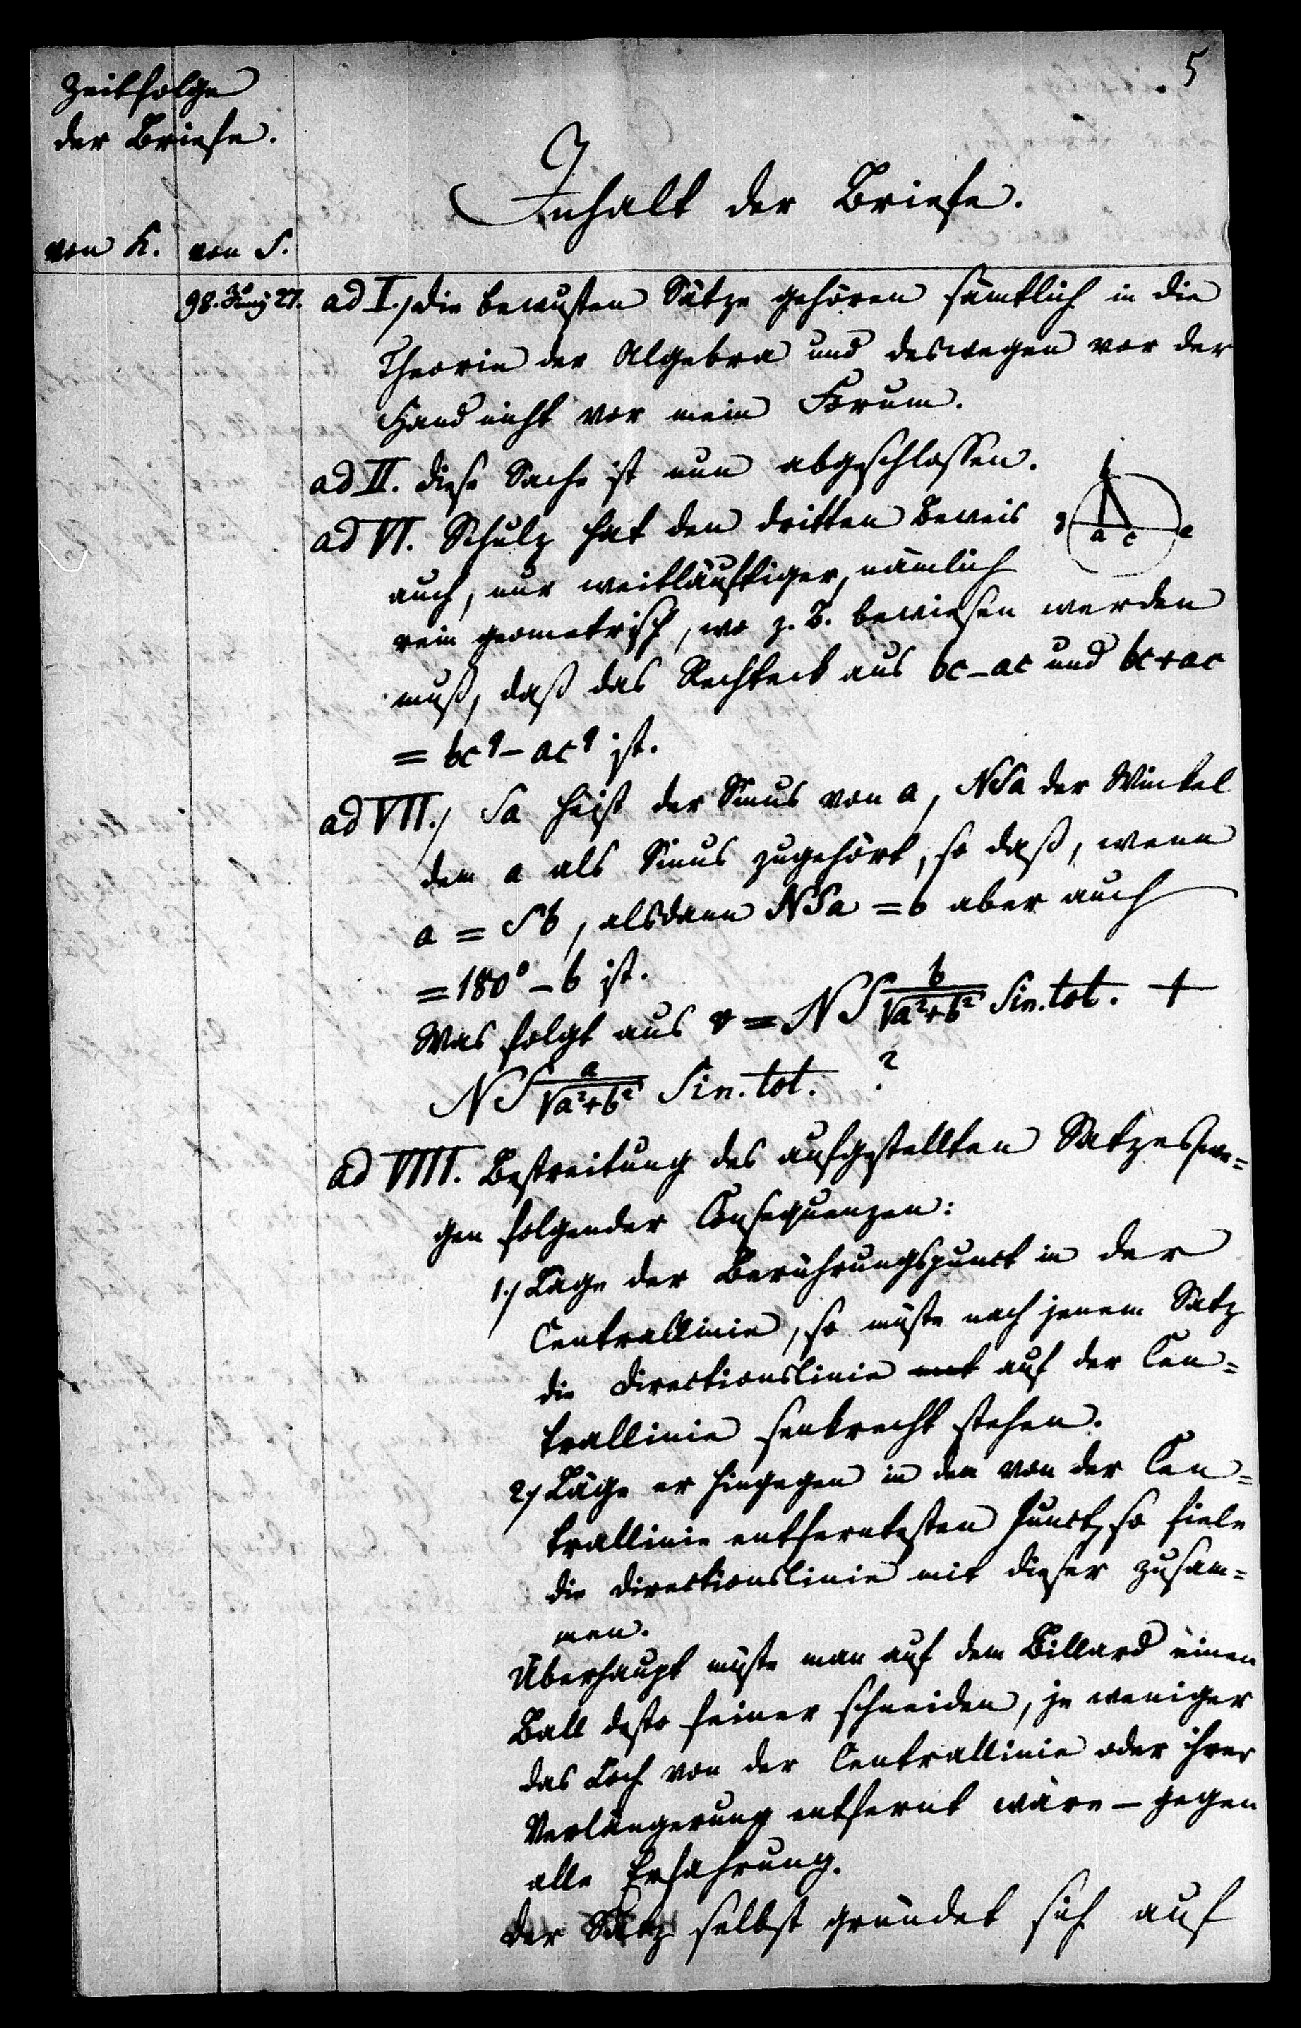 5
Zeitfolge
der Briefe.
Inhalt der Briefe.
von K. von S.
98. Junij 27. ad I./ die bewusten Sätze gehören sämtlich in die
Theorie der Algebra und deswegen vor der
Hand nicht vor mein Forum.
ad II. diese Sache ist nun abgeschlossen.
ad VI. Schulz hat den dritten Beweis
b
g a c e
auch, nur weitläuftiger, nämlich
rein geometrisch, wo z. B. bewiesen werden
muß, daß das Rechteck aus bc-ac und bc+ac
= bcq - acq ist.
ad VII./ Sa heist der Sinus von a, NSa der Winkel
dem a als Sinus zugehört, so daß, wenn
a = Sb, alsdann NSa = b aber auch
= 180° - b ist.
Was folgt aus r = NS b/√a²+b² Sin. tot. +
NS a/√a²+b² Sin. tot. ?
ad VIII. Bestreitung des aufgestellten Satzes we=
gen folgender Consequenzen:
1./ Läge der Berührungspunct in der
Centrallinie, so müste nach jenem Satz
die Directionslinie auf der Cen=
trallinie senkrecht stehen.
2./ Läge er hingegen in den von der Cen=
trallinie entferntesten Punct, so fiele
die Directionslinie mit dieser zusam=
men.
Überhaupt müste man auf dem Billard einen
Ball desto feiner schneiden, je weniger
das Loch von der Centrallinie oder ihrer
Verlängerung entfernt wäre - gegen
alle Erfahrung.
Der Satz selbst gründet sich auf